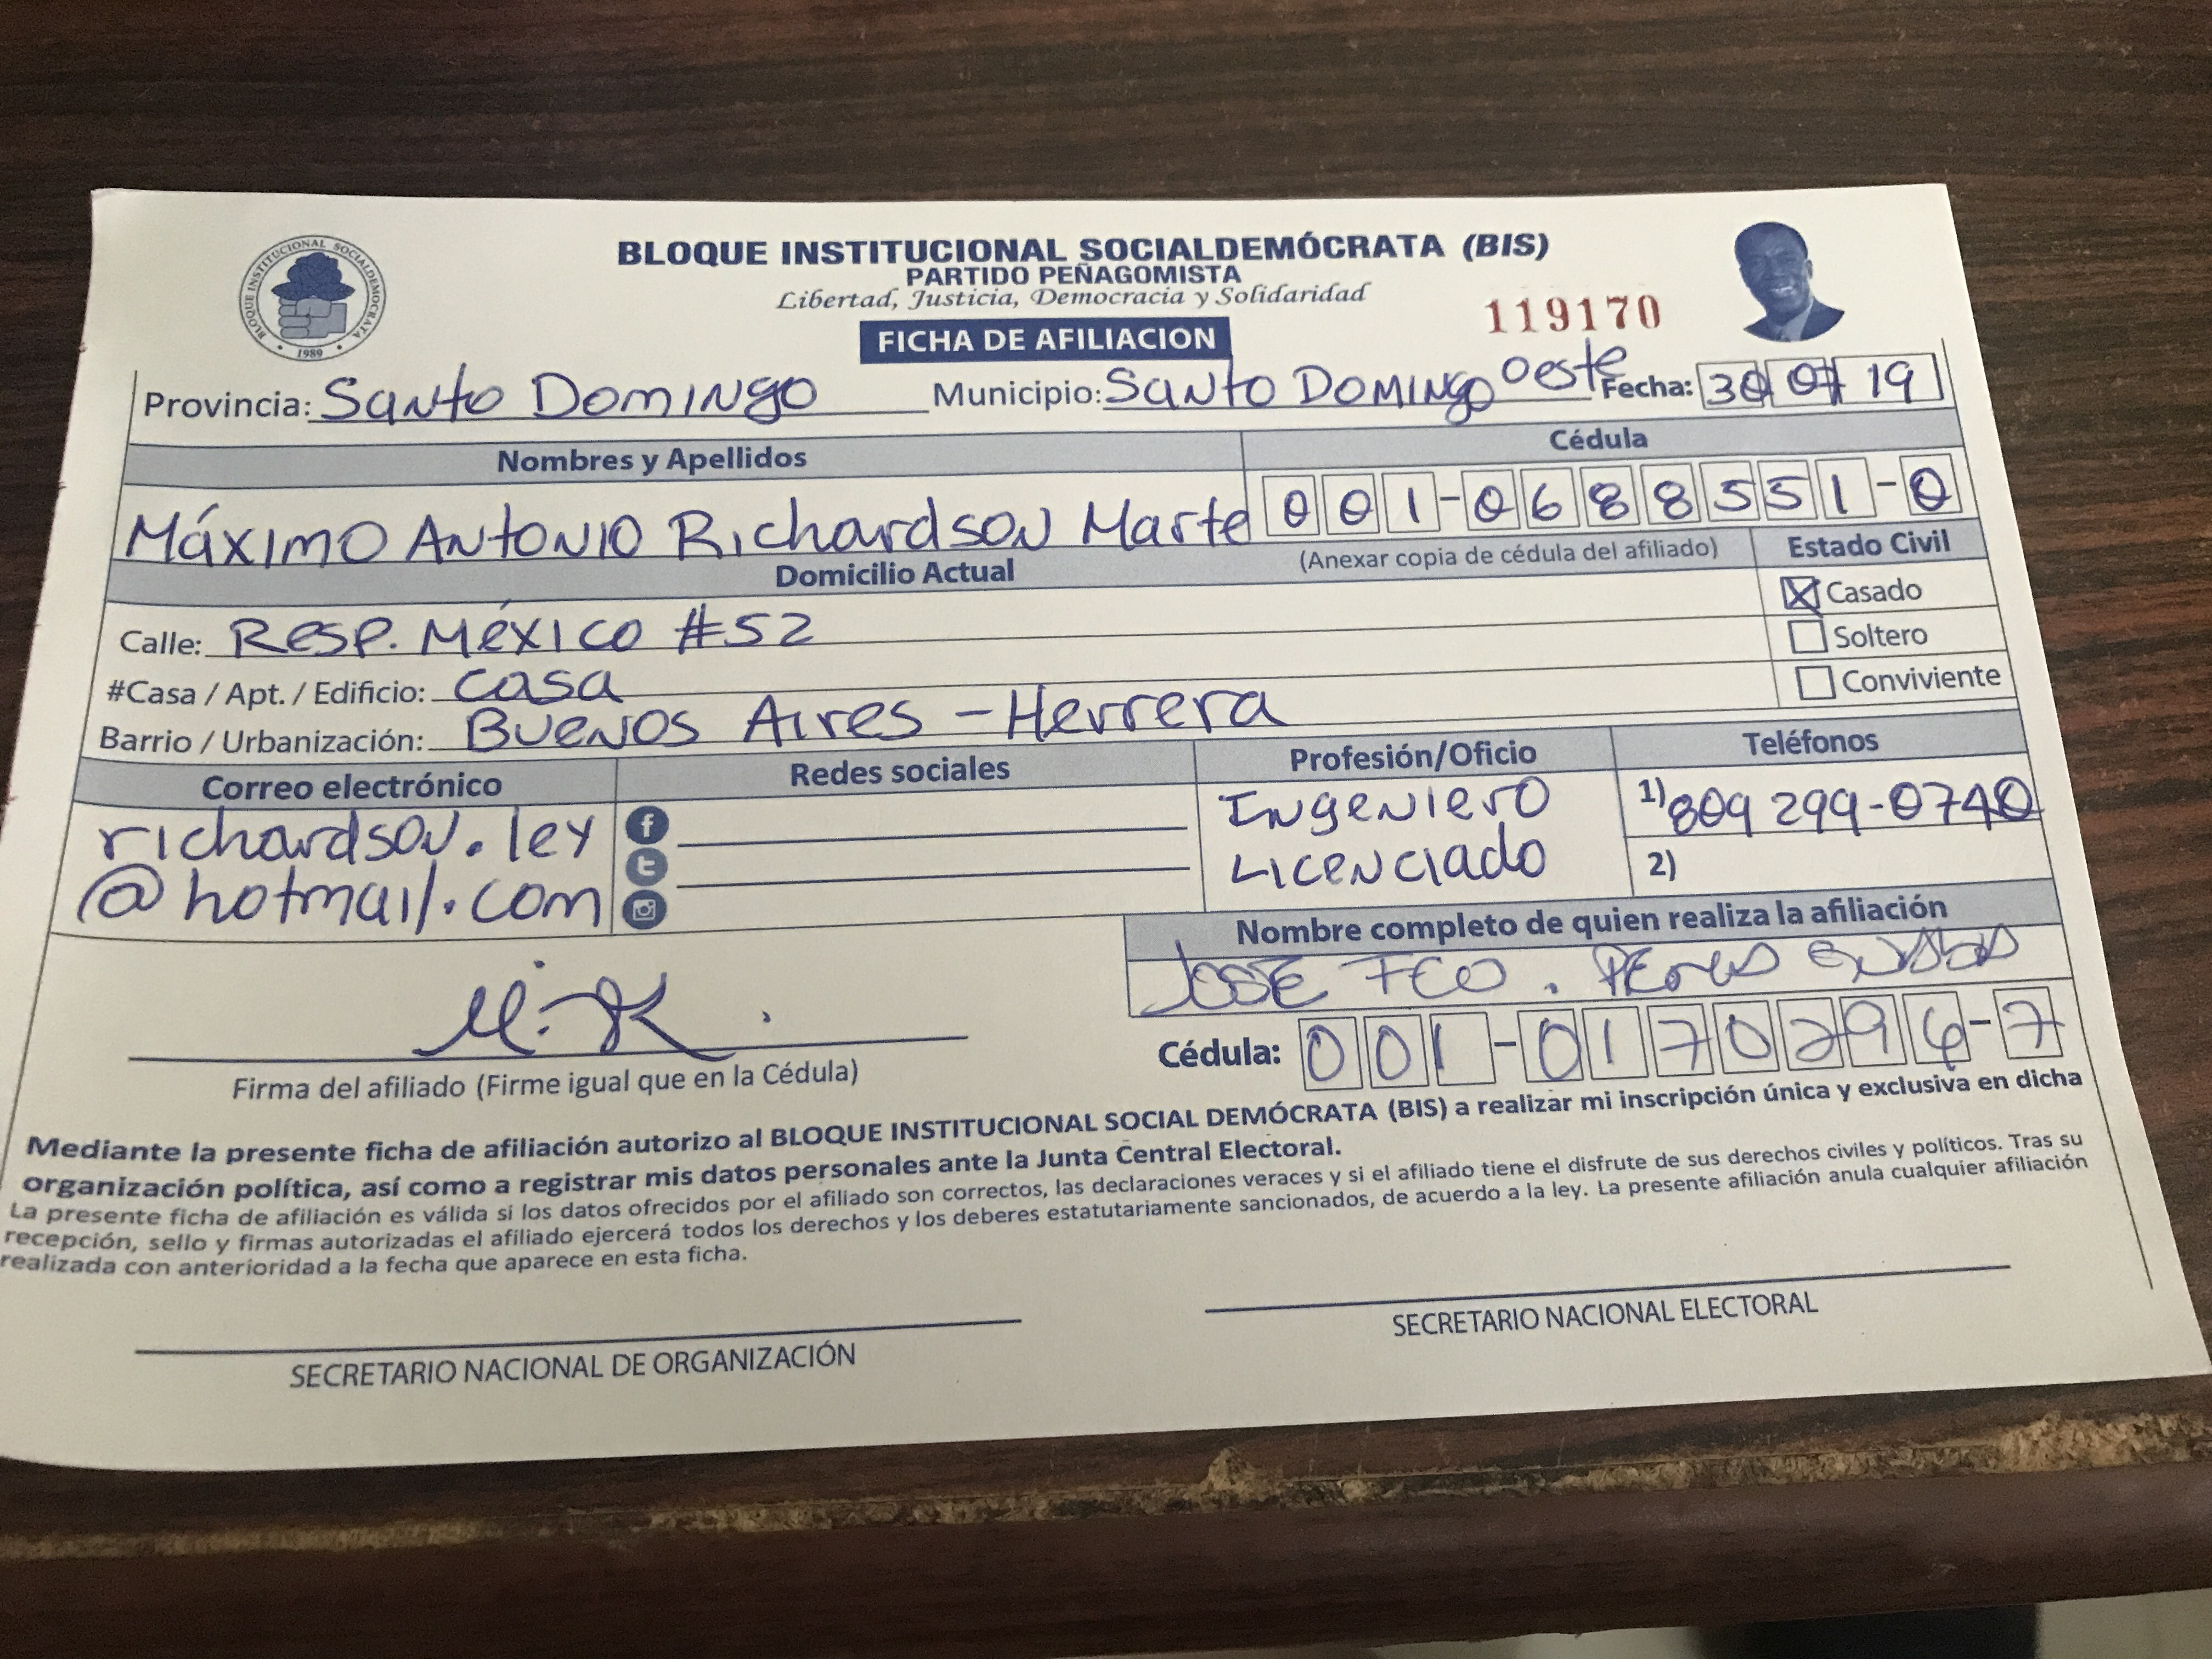 BLOQUE INSTITUCIONAL SOCIALDEMÓCRATA
1989
BLOQUE INSTITUCIONAL SOCIALDEMÓCRATA (BIS)
PARTIDO PEÑAGOMISTA
Libertad, Justicia, Democracia y Solidaridad
119170
FICHA DE AFILIACION
Provincia: Santo Domingo Municipio: Santo Domingo oeste Fecha: 30 07 19
Nombres y Apellidos Cédula
Máximo Antonio Richardson Marte 001-0688551-0
(Anexar copia de cédula del afiliado) Estado Civil
Domicilio Actual
Casado
Calle: Resp. México #52
Soltero
#Casa / Apt. / Edificio: casa
Conviviente
Barrio / Urbanización: Buenos Aires - Herrera
Correo electrónico Redes sociales Profesión/Oficio Teléfonos
richardson.ley Ingeniero 1) 809 299-0740
@hotmail.com Licenciado 2)
Nombre completo de quien realiza la afiliación
JOSE FCO.
M. R.
Cédula: 001-0170296-7
Firma del afiliado (Firme igual que en la Cédula)
Mediante la presente ficha de afiliación autorizo al BLOQUE INSTITUCIONAL SOCIAL DEMÓCRATA (BIS) a realizar mi inscripción única y exclusiva en dicha
organización política, así como a registrar mis datos personales ante la Junta Central Electoral.
La presente ficha de afiliación es válida si los datos ofrecidos por el afiliado son correctos, las declaraciones veraces y si el afiliado tiene el disfrute de sus derechos civiles y políticos. Tras su
recepción, sello y firmas autorizadas el afiliado ejercerá todos los derechos y los deberes estatutariamente sancionados, de acuerdo a la ley. La presente afiliación anula cualquier afiliación
realizada con anterioridad a la fecha que aparece en esta ficha.
SECRETARIO NACIONAL DE ORGANIZACIÓN
SECRETARIO NACIONAL ELECTORAL